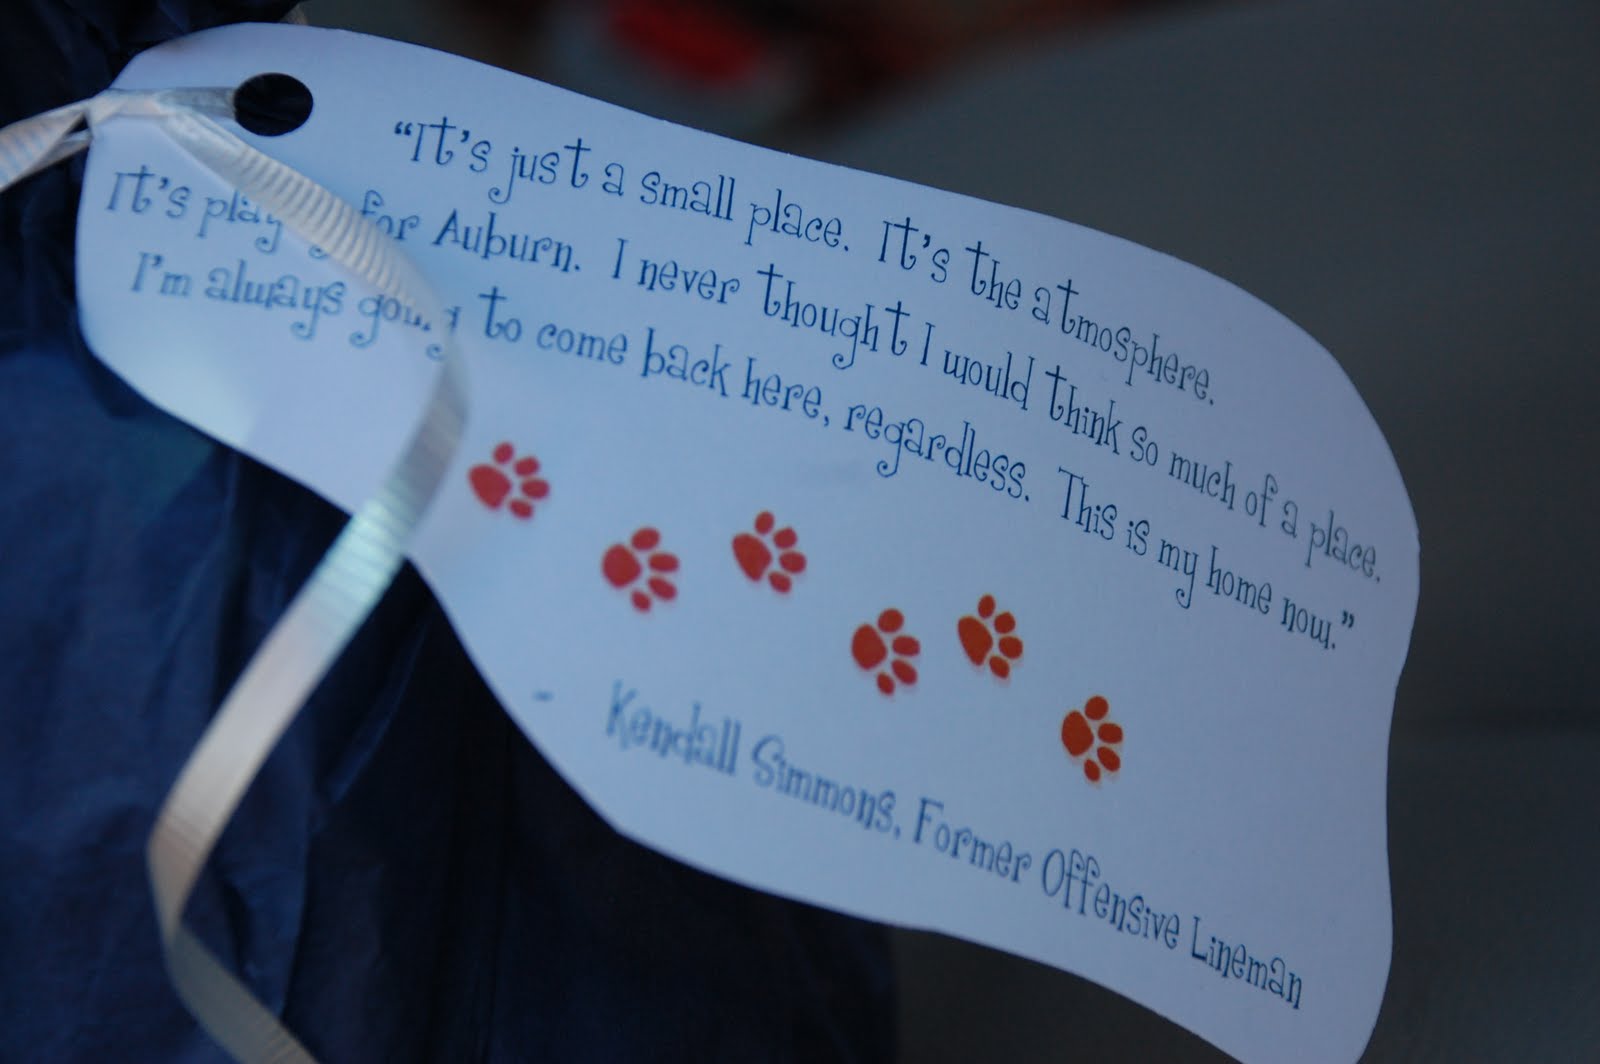 “It’s just a small place. It’s the atmosphere.
It’s playing for Auburn. I never thought I would think so much of a place.
I’m always going to come back here, regardless. This is my home now.”
- Kendall Simmons, Former Offensive Lineman